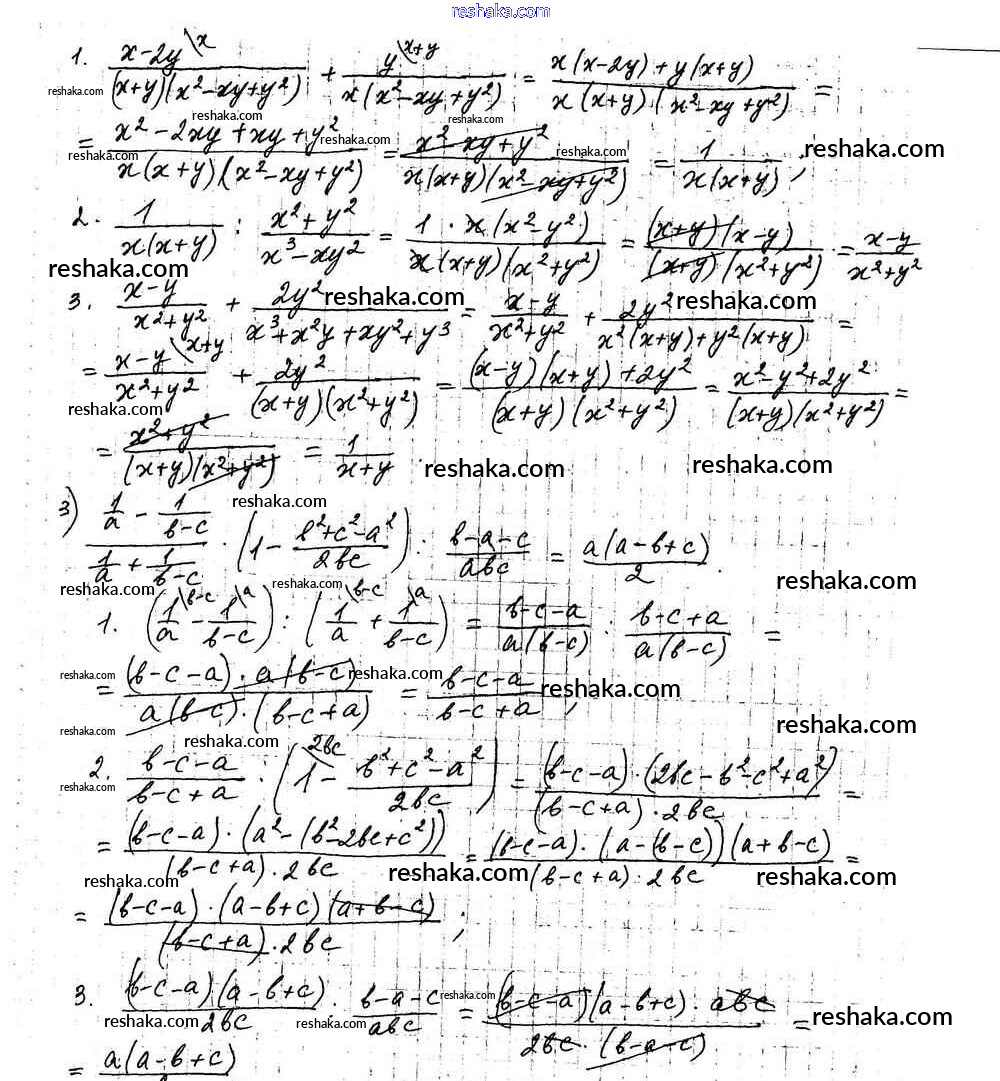 reshaka.com
1. \frac{x-2y^{\backslash x}}{(x+y)(x^2-xy+y^2)} + \frac{y^{\backslash x+y}}{x(x^2-xy+y^2)} = \frac{x(x-2y)+y(x+y)}{x(x+y)(x^2-xy+y^2)} =
reshaka.com reshaka.com reshaka.com
= \frac{x^2-2xy+xy+y^2}{x(x+y)(x^2-xy+y^2)} = \frac{x^2-xy+y^2}{x(x+y)(x^2-xy+y^2)} = \frac{1}{x(x+y)};
reshaka.com reshaka.com reshaka.com reshaka.com
2. \frac{1}{x(x+y)} : \frac{x^2+y^2}{x^3-xy^2} = \frac{1 \cdot x(x^2-y^2)}{x(x+y)(x^2+y^2)} = \frac{(x+y)(x-y)}{(x+y)(x^2+y^2)} = \frac{x-y}{x^2+y^2}
reshaka.com reshaka.com reshaka.com
3. \frac{x-y}{x^2+y^2} + \frac{2y^2}{x^3+x^2y+xy^2+y^3} = \frac{x-y}{x^2+y^2} + \frac{2y^2}{x^2(x+y)+y^2(x+y)} =
= \frac{x-y^{\backslash x+y}}{x^2+y^2} + \frac{2y^2}{(x+y)(x^2+y^2)} = \frac{(x-y)(x+y)+2y^2}{(x+y)(x^2+y^2)} = \frac{x^2-y^2+2y^2}{(x+y)(x^2+y^2)} =
reshaka.com
= \frac{x^2+y^2}{(x+y)(x^2+y^2)} = \frac{1}{x+y}.
reshaka.com reshaka.com reshaka.com
3) \frac{\frac{1}{a}-\frac{1}{b-c}}{\frac{1}{a}+\frac{1}{b-c}} \cdot (1-\frac{b^2+c^2-a^2}{2bc}) : \frac{b-a-c}{abc} = \frac{a(a-b+c)}{2}.
reshaka.com reshaka.com reshaka.com
1. (\frac{1}{a}^{\backslash b-c} - \frac{1}{b-c}^{\backslash a}) : (\frac{1}{a}^{\backslash b-c} + \frac{1}{b-c}^{\backslash a}) = \frac{b-c-a}{a(b-c)} : \frac{b-c+a}{a(b-c)} =
reshaka.com reshaka.com
= \frac{(b-c-a) \cdot a(b-c)}{a(b-c) \cdot (b-c+a)} = \frac{b-c-a}{b-c+a};
reshaka.com reshaka.com reshaka.com
reshaka.com
2. \frac{b-c-a}{b-c+a} : (1^{\backslash 2bc} - \frac{b^2+c^2-a^2}{2bc}) = \frac{(b-c-a) \cdot (2bc-b^2-c^2+a^2)}{(b-c+a) \cdot 2bc} =
reshaka.com
= \frac{(b-c-a) \cdot (a^2-(b^2-2bc+c^2))}{(b-c+a) \cdot 2bc} = \frac{(b-c-a) \cdot (a-(b-c))(a+b-c)}{(b-c+a) \cdot 2bc} =
reshaka.com reshaka.com reshaka.com
= \frac{(b-c-a) \cdot (a-b+c)(a+b-c)}{(b-c+a) \cdot 2bc};
3. \frac{(b-c-a)(a-b+c)}{2bc} : \frac{b-a-c}{abc} = \frac{(b-c-a)(a-b+c) \cdot abc}{2bc \cdot (b-a-c)} =
reshaka.com reshaka.com reshaka.com reshaka.com
= a(a-b+c)